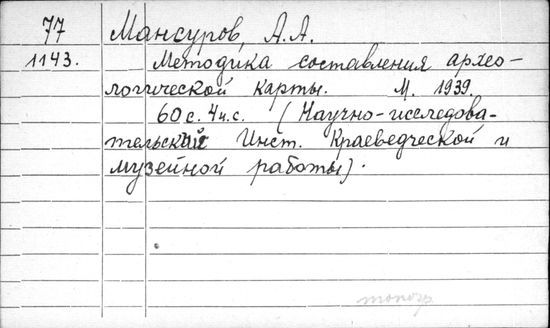 77 Мансуров, А.А.
1143. Методика составления архео-
логической карты. М. 1939.
60 с. 4 и.с. (Научно-исследова-
тельский Инст. Краеведческой и
музейной работы).
моногр